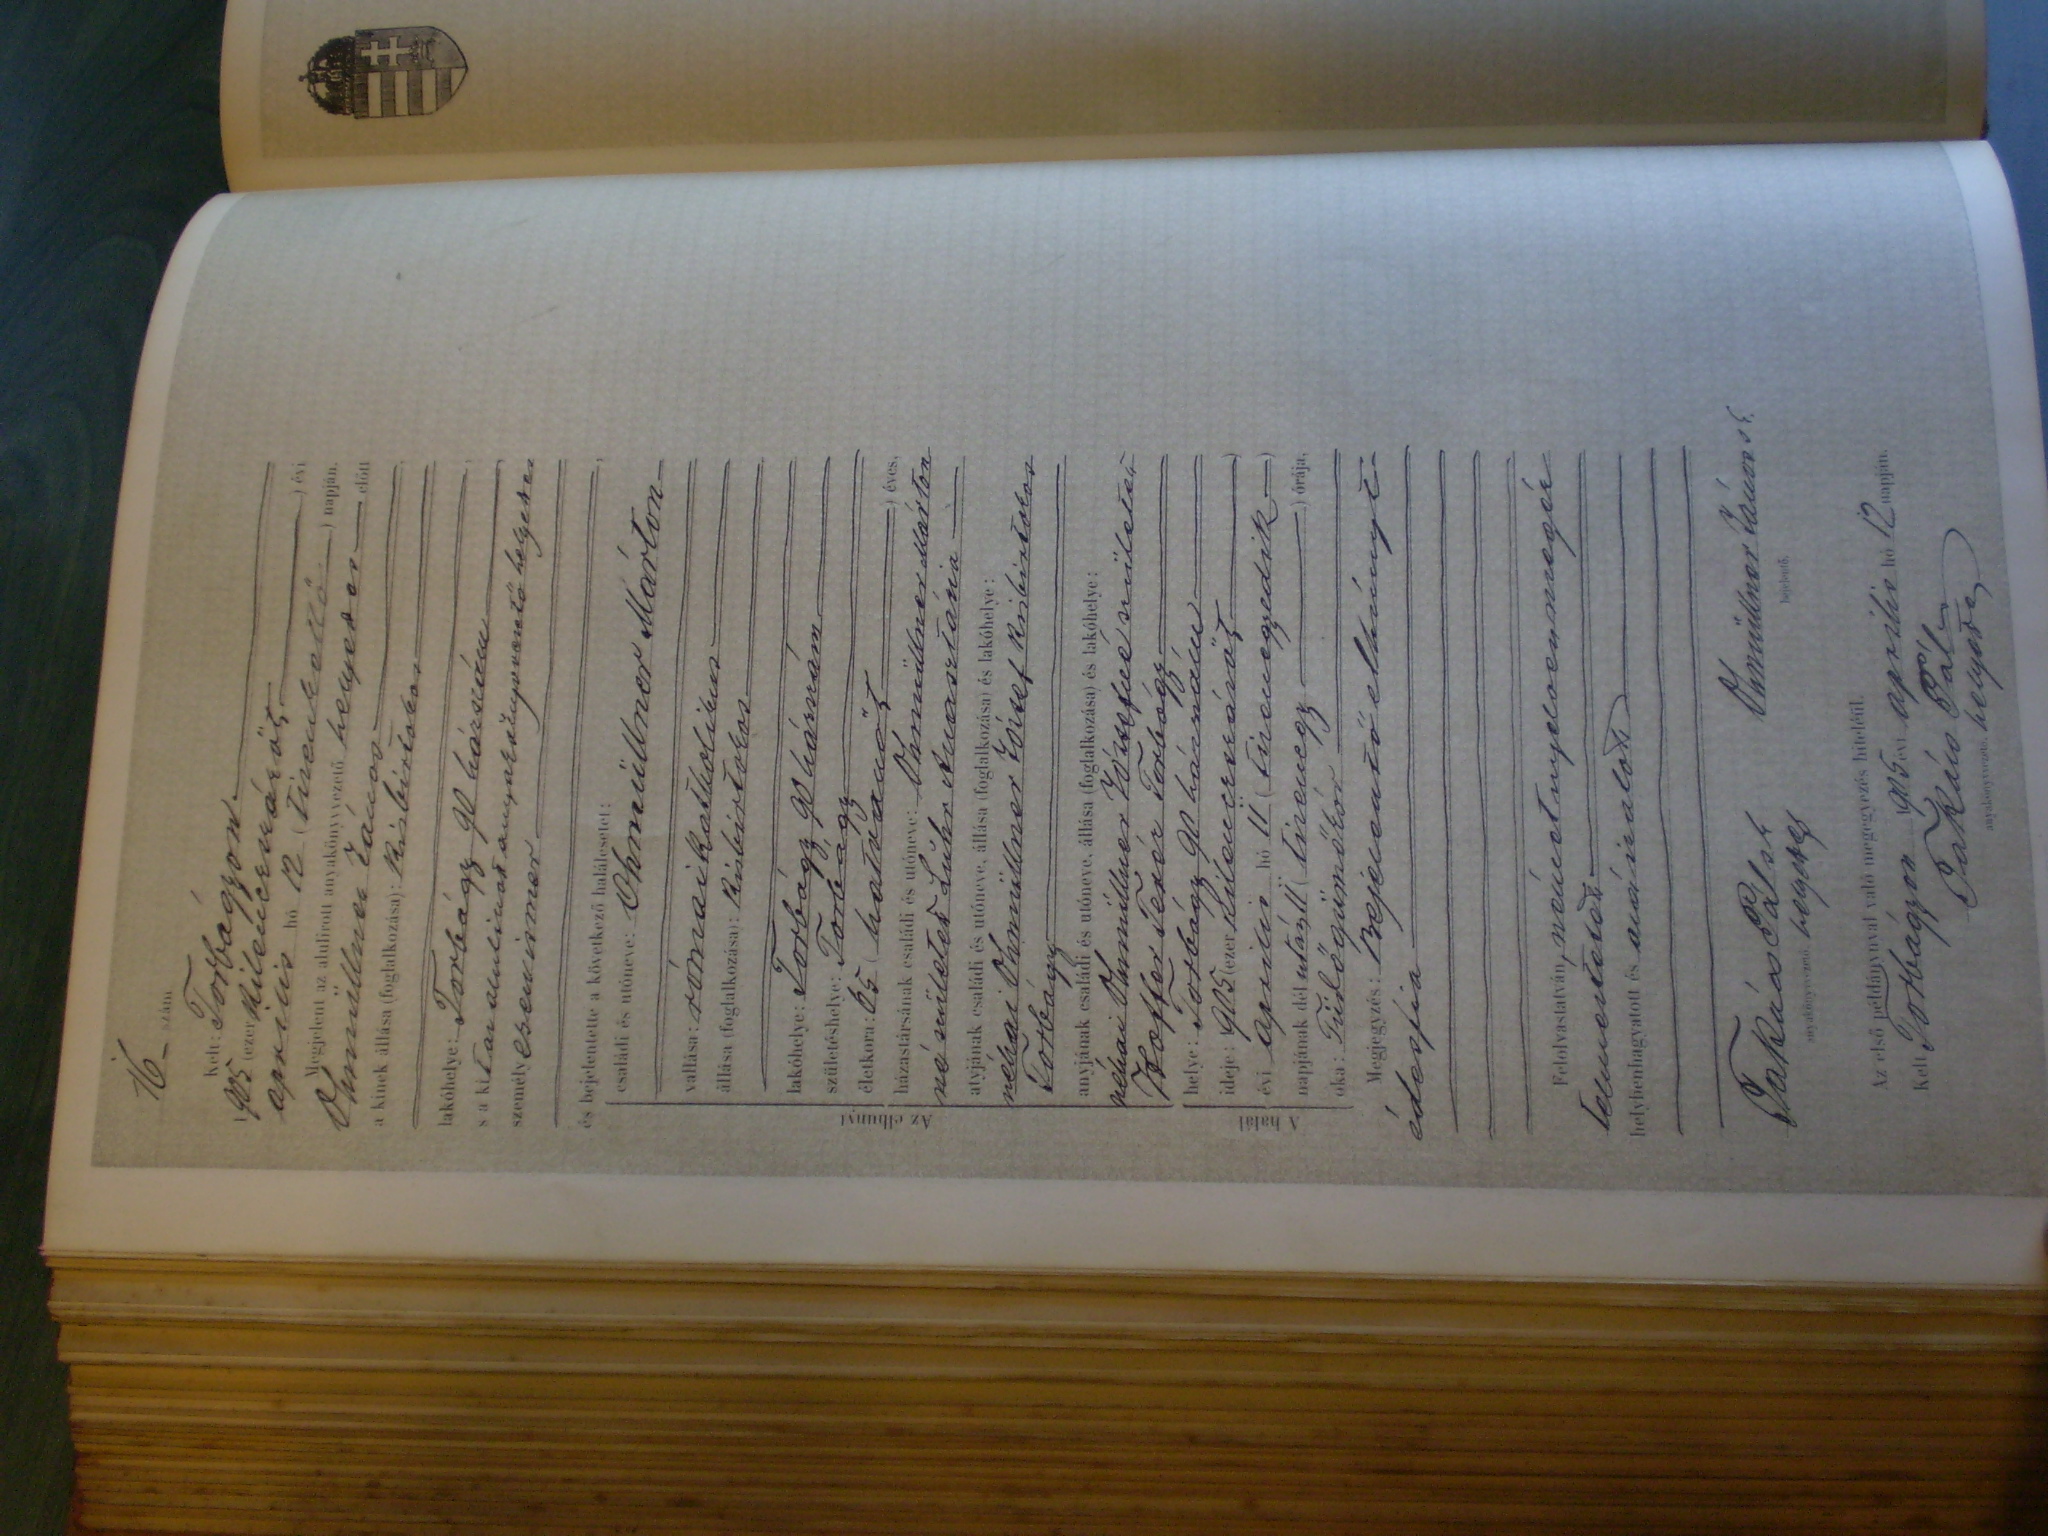 16 szám
Kelt: Torbágyon
1905 (ezer kilenczszázöt) évi
április hó 12 (tizenkettő) napján.
Megjelent az alulirott anyakönyvvezető helyettes előtt
Ohmüllner János
a kinek állása (foglalkozása): kisbirtokos
lakóhelye: Torbágy 90 házszám
s a kit az alulirott anyakönyvvezető helyettes
személyesen ismer
és bejelentette a következő halálesetet:
Az elhunyt
családi és utóneve: Ohmüllner Márton
vallása: római katholikus
állása (foglalkozása): kisbirtokos
lakóhelye: Torbágy 90 házszám
születéshelye: Torbágy
életkora: 65 (hatvanöt) éves,
házastársának családi és utóneve: Ohmüllner Mártonné
született Anasztázia
atyjának családi és utóneve, állása (foglalkozása) és lakóhelye:
néhai Ohmüllner József kisbirtokos
Torbágy
anyjának családi és utóneve, állása (foglalkozása) és lakóhelye:
néhai Ohmüllner Józsefné született
Hoffer Teréz Torbágy
A halál
helye: Torbágy 90 házszám
ideje: 1905 (ezer kilenczszázöt)
évi április hó 11 (tizenegyedik)
napjának dél után 11 (tizenegy) órája,
oka: Tüdőgümőkór
Megjegyzés: Bejelentő elhúnyt
édesfia
Felolvastatván, német nyelven megértelmeztetett
helybenhagyatott és aláíratott
Takács Pál sk Ohmüllner János sk.
anyakönyvvezető helyettes bejelentő.
Az első példánynyal való megegyezés hiteléül.
Kelt Torbágyon 1905 évi április hó 12 napján.
Takács Pál
anyakönyvvezető. helyettes